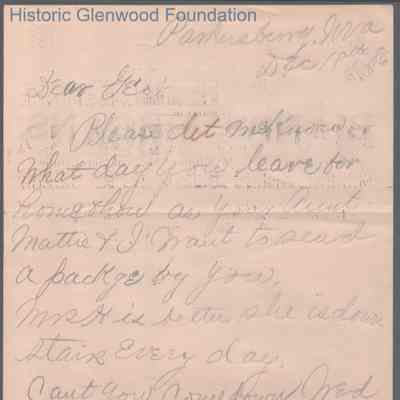 Historic Glenwood Foundation
Parkersburg, W Va
Dec 18th
Dear Geo.
Please let me know
what day you leave for
home now as your Aunt
Mattie & I want to send
a packge by you,
Mrs H is better she is down
stairs Every day.
Cant you come down Wed